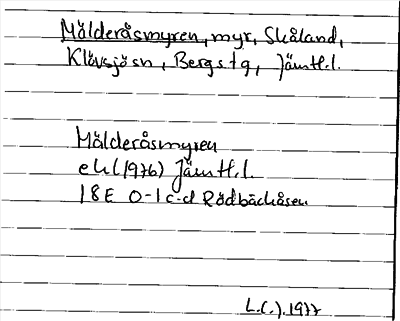 Mälderåsmyren, myr, Skåland,
Klövsjö sn, Bergs tg, Jämtl. l.
Mälderåsmyren
ek (1976) Jämtl. l.
18E 0-1 c-d Rödbäckåsen
L.C.J. 1977